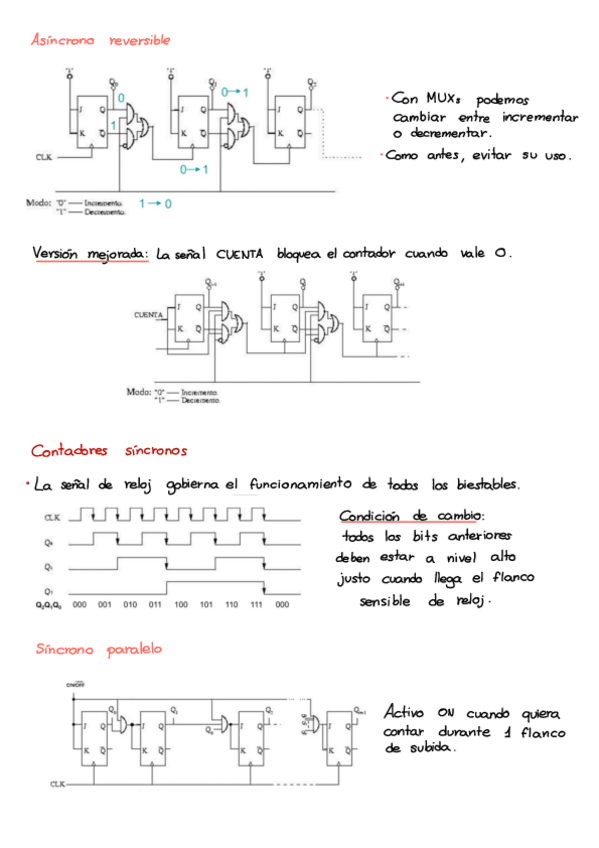 Asíncrono reversible
"1" "1" "1"
Q₀ Q₁ Q₂
0 0→1
J Q J Q J Q
1
K Q̅ K Q̅ K Q̅
CLK
0→1
Modo: "0" — Incremento.
"1" — Decremento.
1→0
· Con MUXs podemos
cambiar entre incrementar
o decrementar.
· Como antes, evitar su uso.
Versión mejorada: La señal CUENTA bloquea el contador cuando vale 0.
CUENTA
J Q J Q J Q
K Q̅ K Q̅ K Q̅
Modo: "0" — Incremento.
"1" — Decremento.
Contadores síncronos
· La señal de reloj gobierna el funcionamiento de todos los biestables.
CLK
Q₀
Q₁
Q₂Q₁Q₀ 000 001 010 011 100 101 110 111 000
Condición de cambio:
todos los bits anteriores
deben estar a nivel alto
justo cuando llega el flanco
sensible de reloj.
Síncrono paralelo
ON/OFF
Q₀ Q₁ Q₂
J Q J Q J Q J Q
K Q̅ K Q̅ K Q̅ K Q̅
CLK
Activo ON cuando quiera
contar durante 1 flanco
de subida.